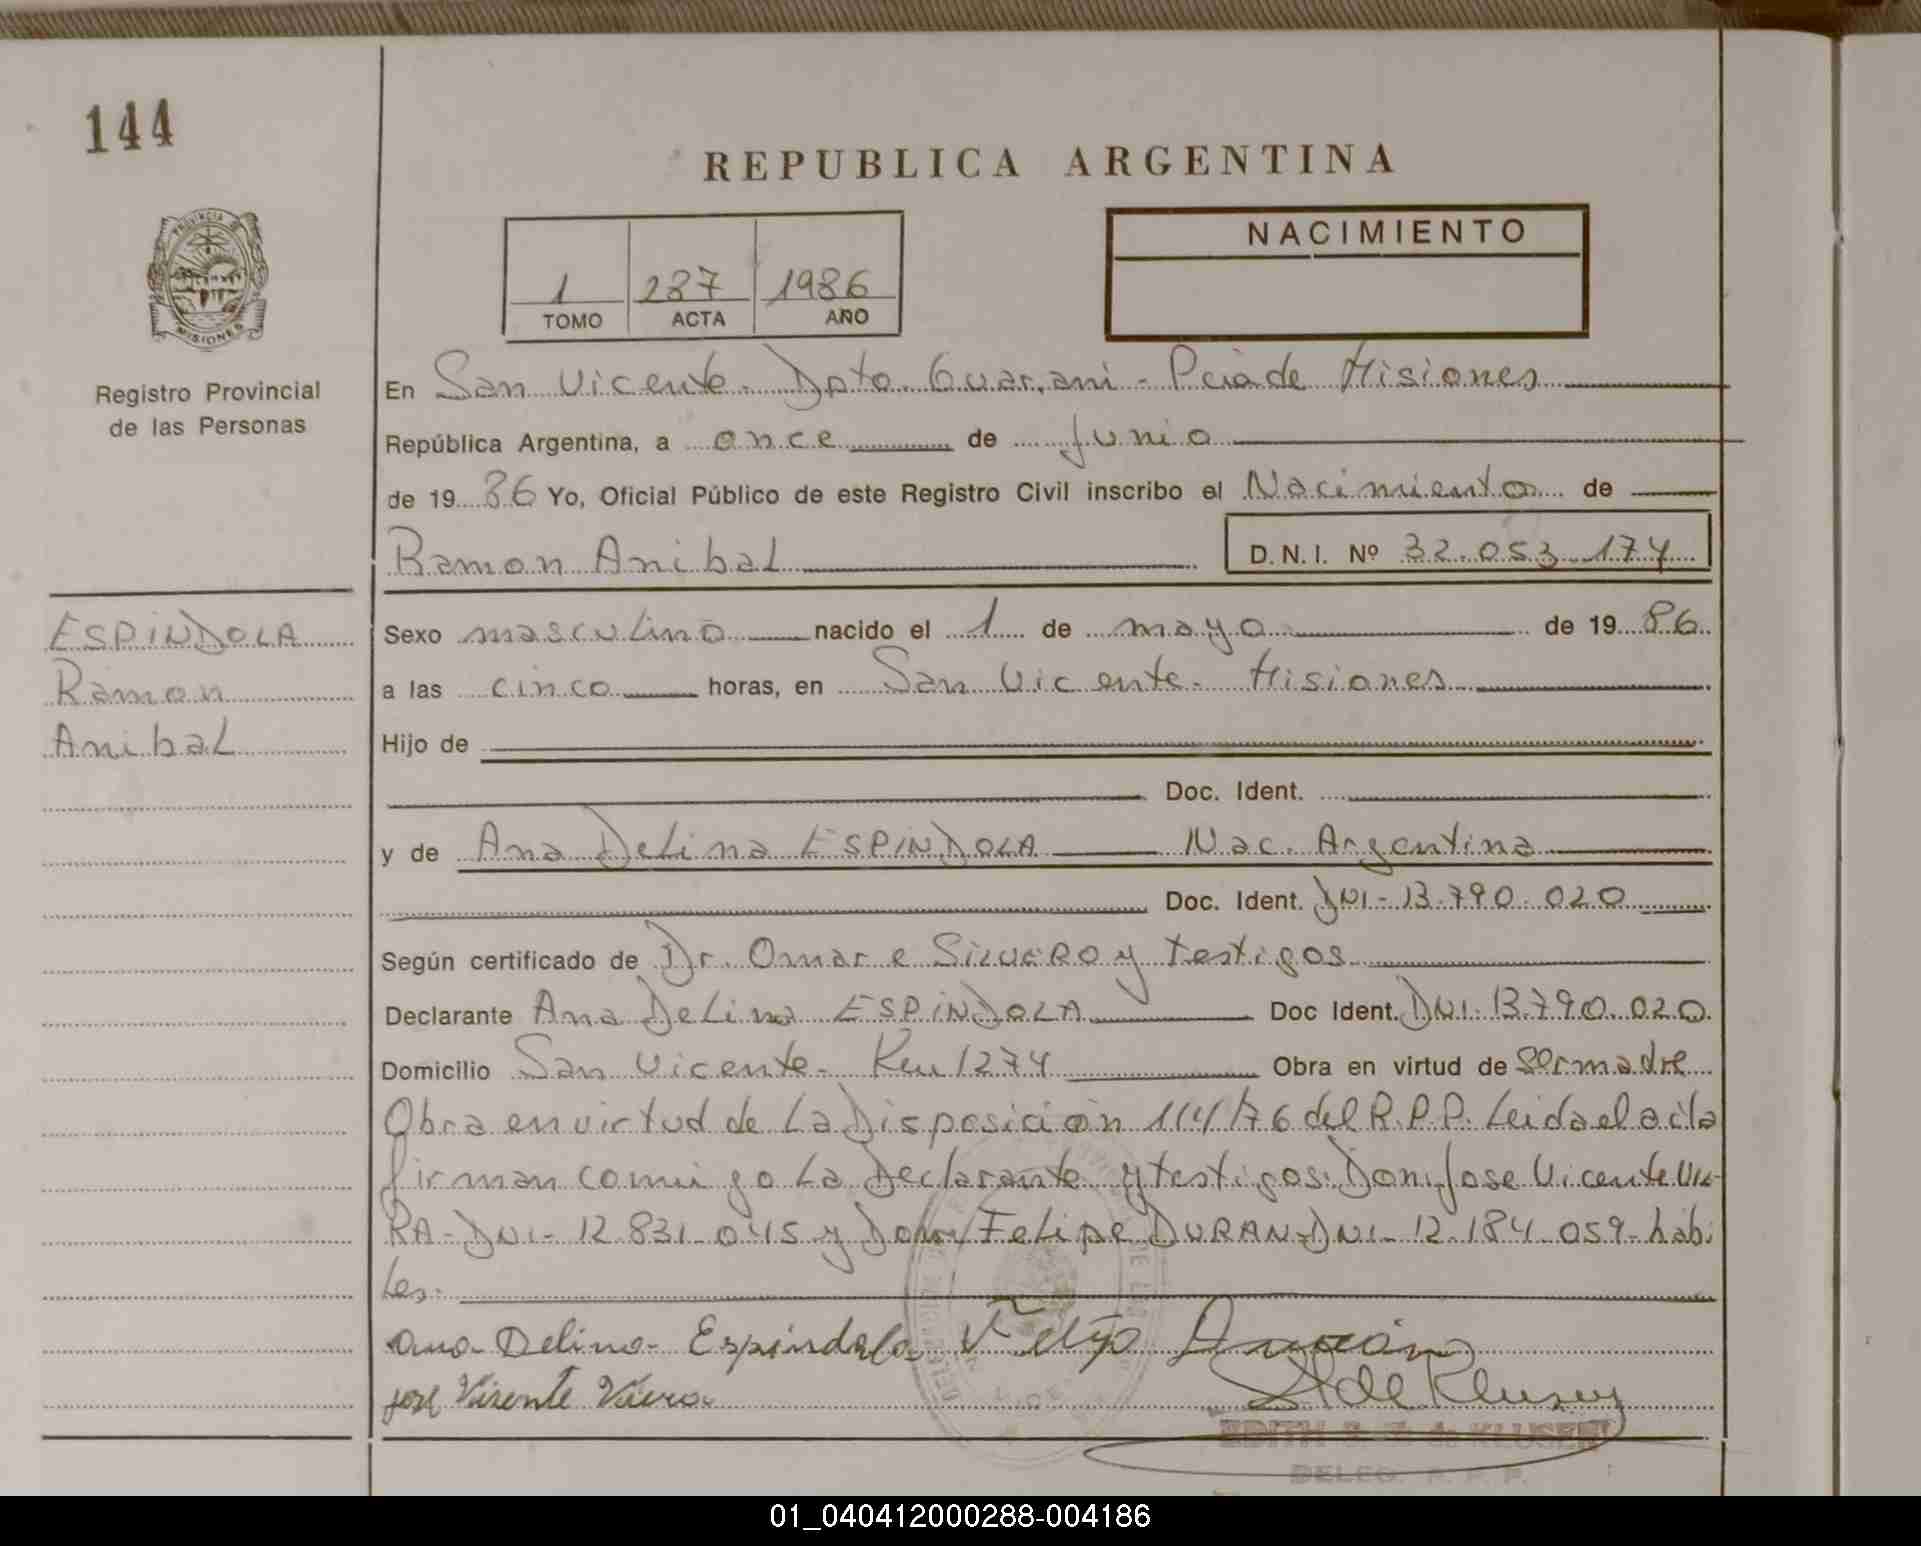 144
REPUBLICA ARGENTINA
PROVINCIA DE
MISIONES
Registro Provincial
de las Personas
1 287 1986
TOMO ACTA AÑO
NACIMIENTO
En San Vicente - Dpto Guarani - Pcia de Misiones
República Argentina, a once de Junio
de 19 86 Yo, Oficial Público de este Registro Civil inscribo el Nacimiento de
Ramon Anibal D.N.I. Nº 32.053.174
ESPINDOLA
Ramon
Anibal
Sexo masculino nacido el 1 de mayo de 19 86
a las cinco horas, en San Vicente - Misiones
Hijo de
Doc. Ident.
y de Ana Delina ESPINDOLA Nac. Argentina
Doc. Ident. DNI - 13.790.020
Según certificado de Dr. Omar e SILVERO y testigos
Declarante Ana Delina ESPINDOLA Doc Ident. DNI - 13.790.020
Domicilio San Vicente - Km 1274 Obra en virtud de ser madre
Obra en virtud de La Disposicion 114/76 del R.P.P. Leida el acta
firman comigo La Declarante y testigos: Don Jose Vicente Vie-
RA - DNI - 12.831.045 y Don Felipe DURAN - DNI - 12.184.059 - habi
les.
Ana Delina Espindola Felipe Duran
José Vicente Viera
EDITH S. Z. de KLUSENER
DELEG. R. P. P.
01_040412000288-004186